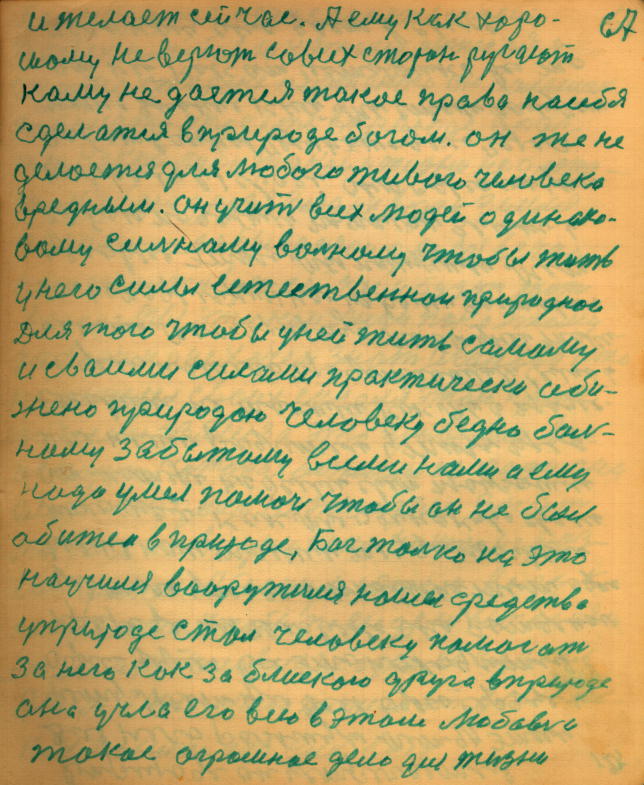 и желает сейчас. А ему как хоро-
шому не верют сових сторон ругают
кому не дается такое права насебя
сделатся вприроде богом. он же не
делается для любого живого человека
вредным. он учит всех людей одинако-
вому силнаму волному чтобы жить
унего силы естественной природной
Для того чтобы уней жить самому
и сваими силами практически оби-
жено природою человеку бедно бол-
ному забытому всеми нами а ему
надо умел памочи чтобы он не был
абижен вприроде, Бог толко на это
научился вооружился нашел средства
уприроде стал человеку помогат
за него как за блиского друга вприроде
она учла его всю вэтом любовь и
такое огромное дело для жизни